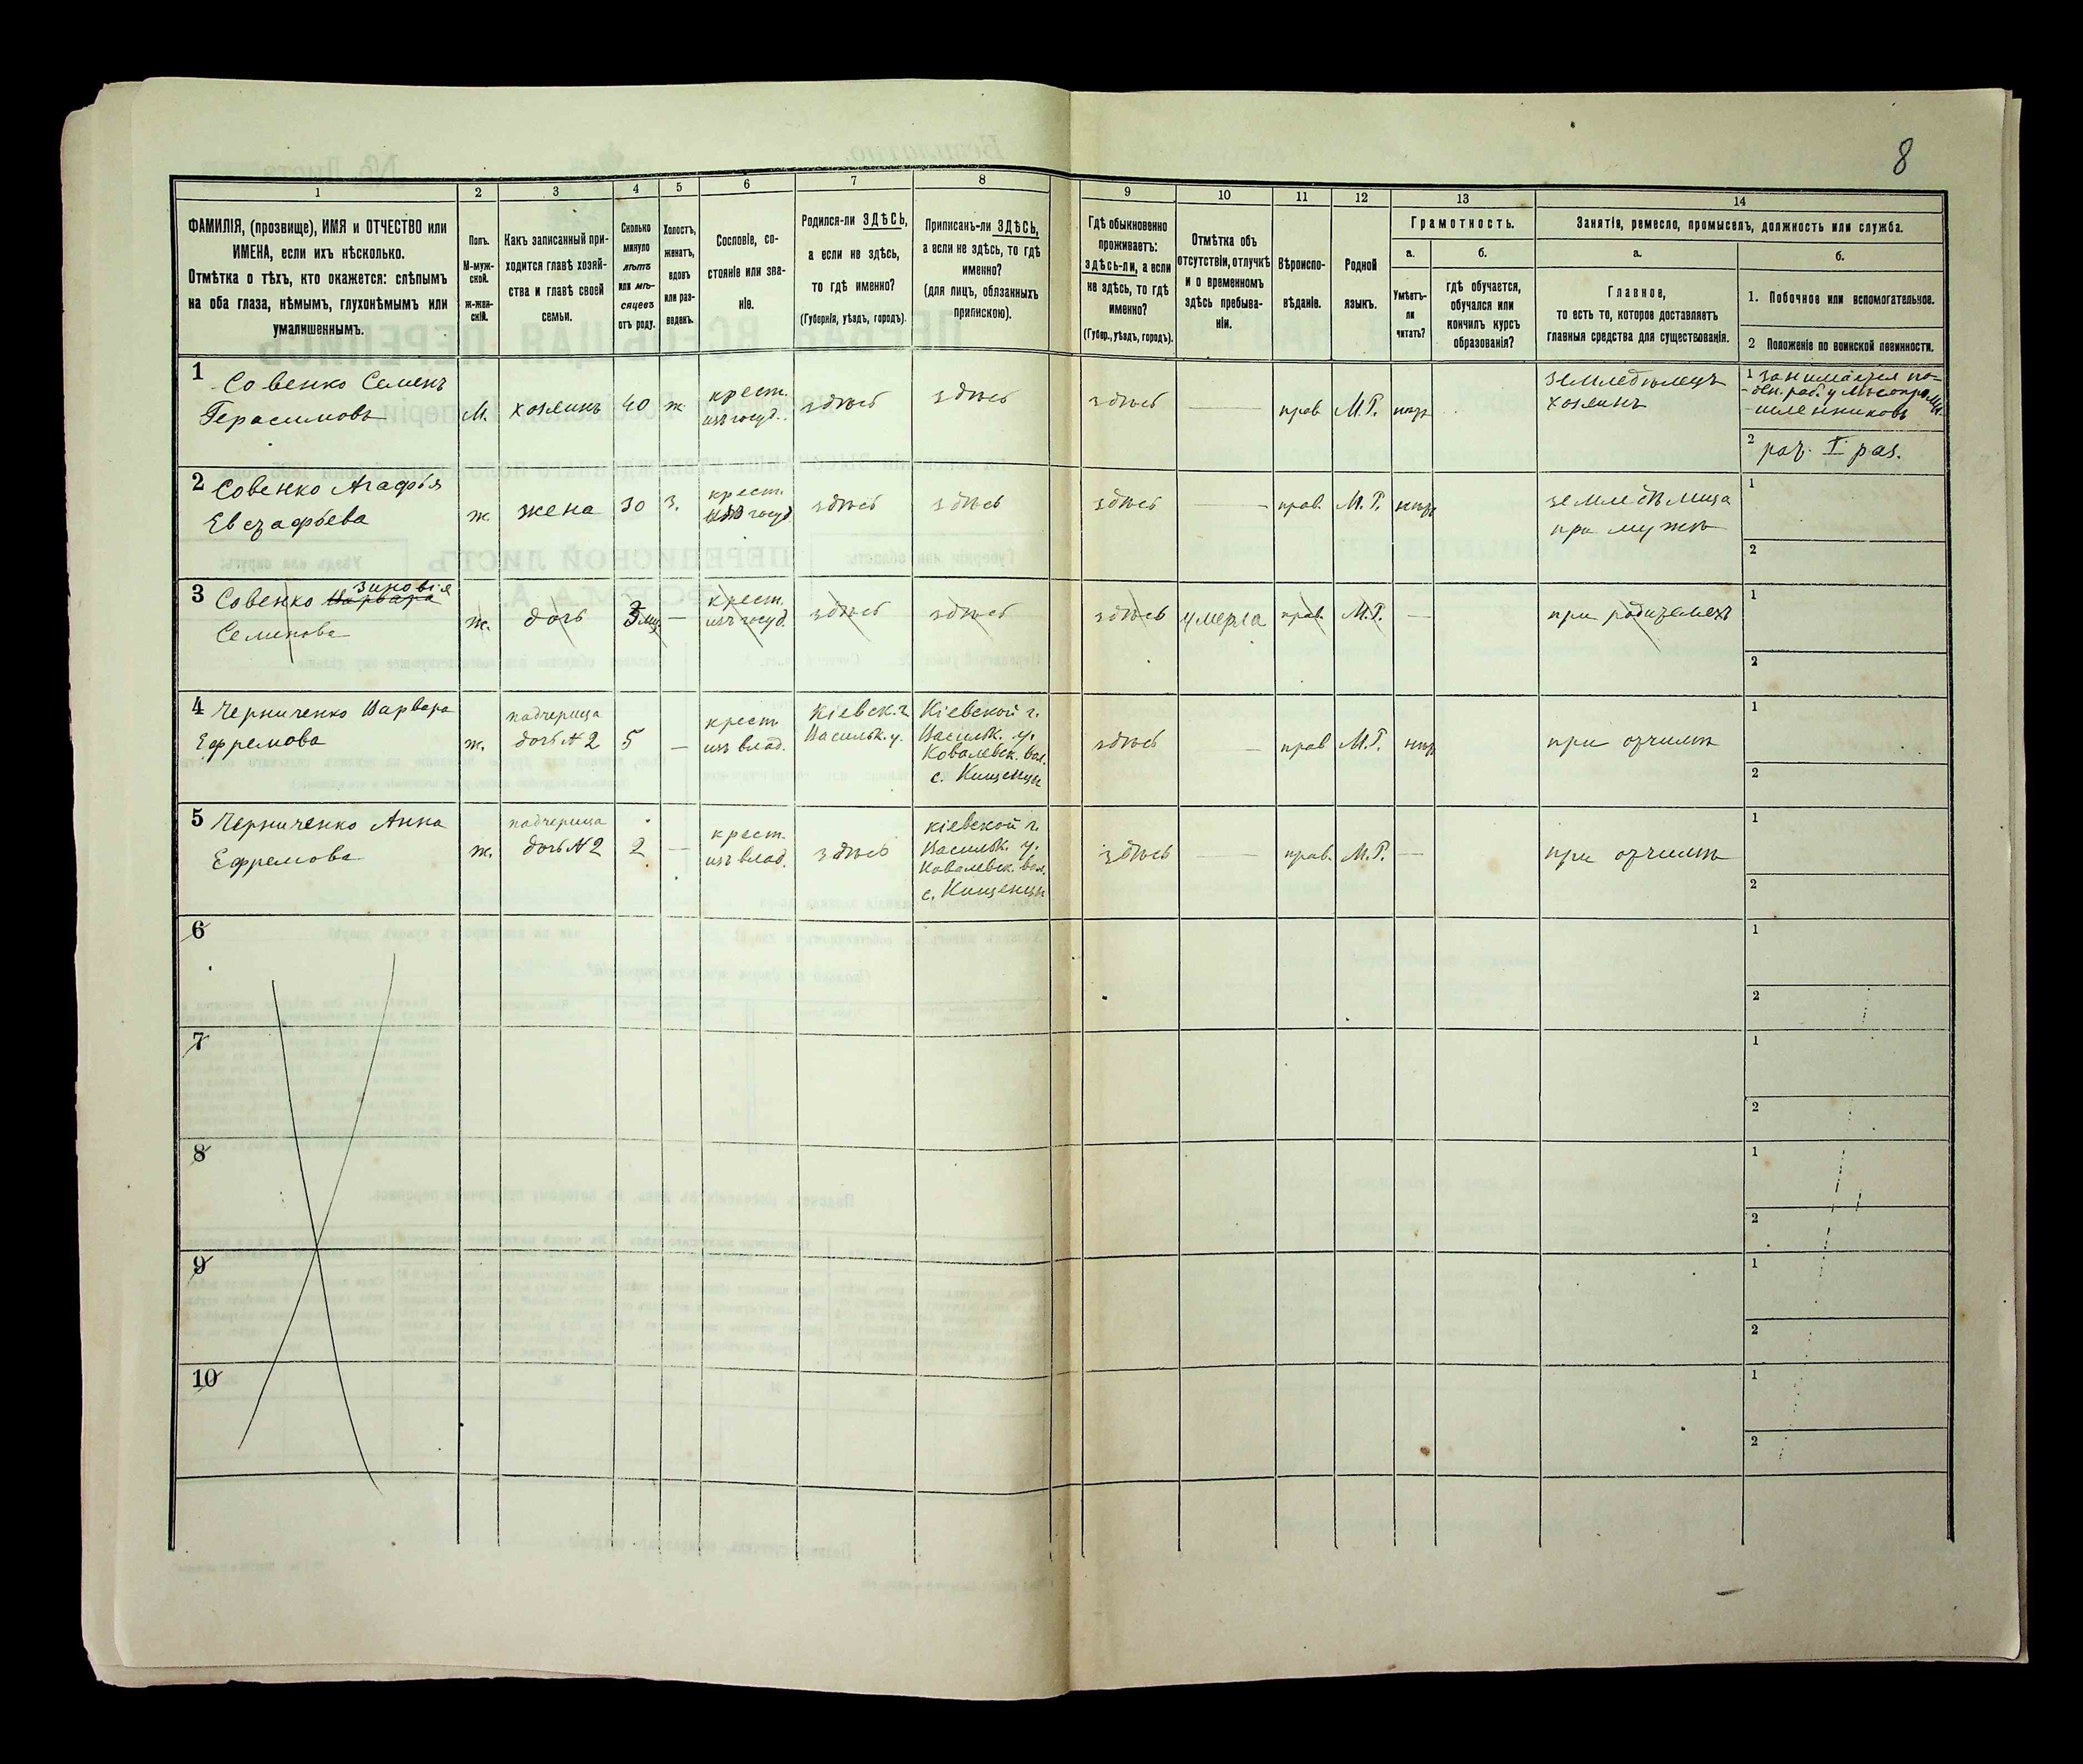 8
1
2
3
4
5
6
7
8
9
10
11
12
13
14
ФАМИЛІЯ, (прозвище), ИМЯ и ОТЧЕСТВО или
ИМЕНА, если ихъ нѣсколько.
Отмѣтка о тѣхъ, кто окажется: слѣпымъ
на оба глаза, нѣмымъ, глухонѣмымъ или
умалишеннымъ.
Полъ.
М-муж-
ской.
ж-жен-
скій.
Какъ записанный при-
ходится главѣ хозяй-
ства и главѣ своей
семьи.
Сколько
минуло
лѣтъ
или мѣ-
сяцевъ
отъ роду.
Холостъ,
женатъ,
вдовъ
или раз-
веденъ.
Сословіе, со-
стояніе или зва-
ніе.
Родился-ли ЗДѢСЬ,
а если не здѣсь,
то гдѣ именно?
(Губернія, уѣздъ, городъ).
Приписанъ-ли ЗДѢСЬ,
а если не здѣсь, то гдѣ
именно?
(для лицъ, обязанныхъ
припискою).
Гдѣ обыкновенно
проживаетъ:
здѣсь-ли, а если
не здѣсь, то гдѣ
именно?
(Губер., уѣздъ, городъ).
Отмѣтка объ
отсутствіи, отлучкѣ
и о временномъ
здѣсь пребыва-
ніи.
Вѣроиспо-
вѣданіе.
Родной
языкъ.
Грамотность.
а.
Умѣетъ-
ли
читать?
б.
гдѣ обучается,
обучался или
кончилъ курсъ
образованія?
Занятіе, ремесло, промыселъ, должность или служба.
а.
Главное,
то есть то, которое доставляетъ
главныя средства для существованія.
б.
1. Побочное или вспомогательное.
2 Положеніе по воинской повинности.
1 Совенко Семенъ
Герасимовъ
М.
хозяинъ
40
ж
крест.
изъ госуд.
здѣсь
здѣсь
здѣсь
—
прав.
М.Р.
земледѣлецъ
хозяинъ
1 занимается по-
2
2 Совенко Агафья
ж.
жена
30
з.
крест.
изъ госуд
здѣсь
здѣсь
здѣсь
—
прав.
М.Р.
при мужѣ
1
2
3 Совенко Варвара Зиновія
Семенова
ж.
дочь
—
крест.
изъ госуд.
здѣсь
здѣсь
здѣсь
умерла
прав.
М.Р.
—
при родителяхъ
1
2
4 Черниченко Варвара
Ефремова
ж.
падчерица
дочь № 2
5
—
крест
изъ влад.
Кіевск. г.
Васильк. у.
Кіевской г.
Васильк. у.
Ковалевск. вол.
с. Кищенцы
здѣсь
—
прав
М.Р.
при отчимѣ
1
2
5 Черниченко Анна
Ефремова
ж.
падчерица
дочь № 2
2
—
крест.
изъ влад.
здѣсь
Кіевской г.
Васильк. у.
Ковалевск. вол.
с. Кищенцы
здѣсь
—
прав.
М.Р.
—
при отчимѣ
1
2
6
1
2
7
1
2
8
1
2
9
1
2
10
1
2